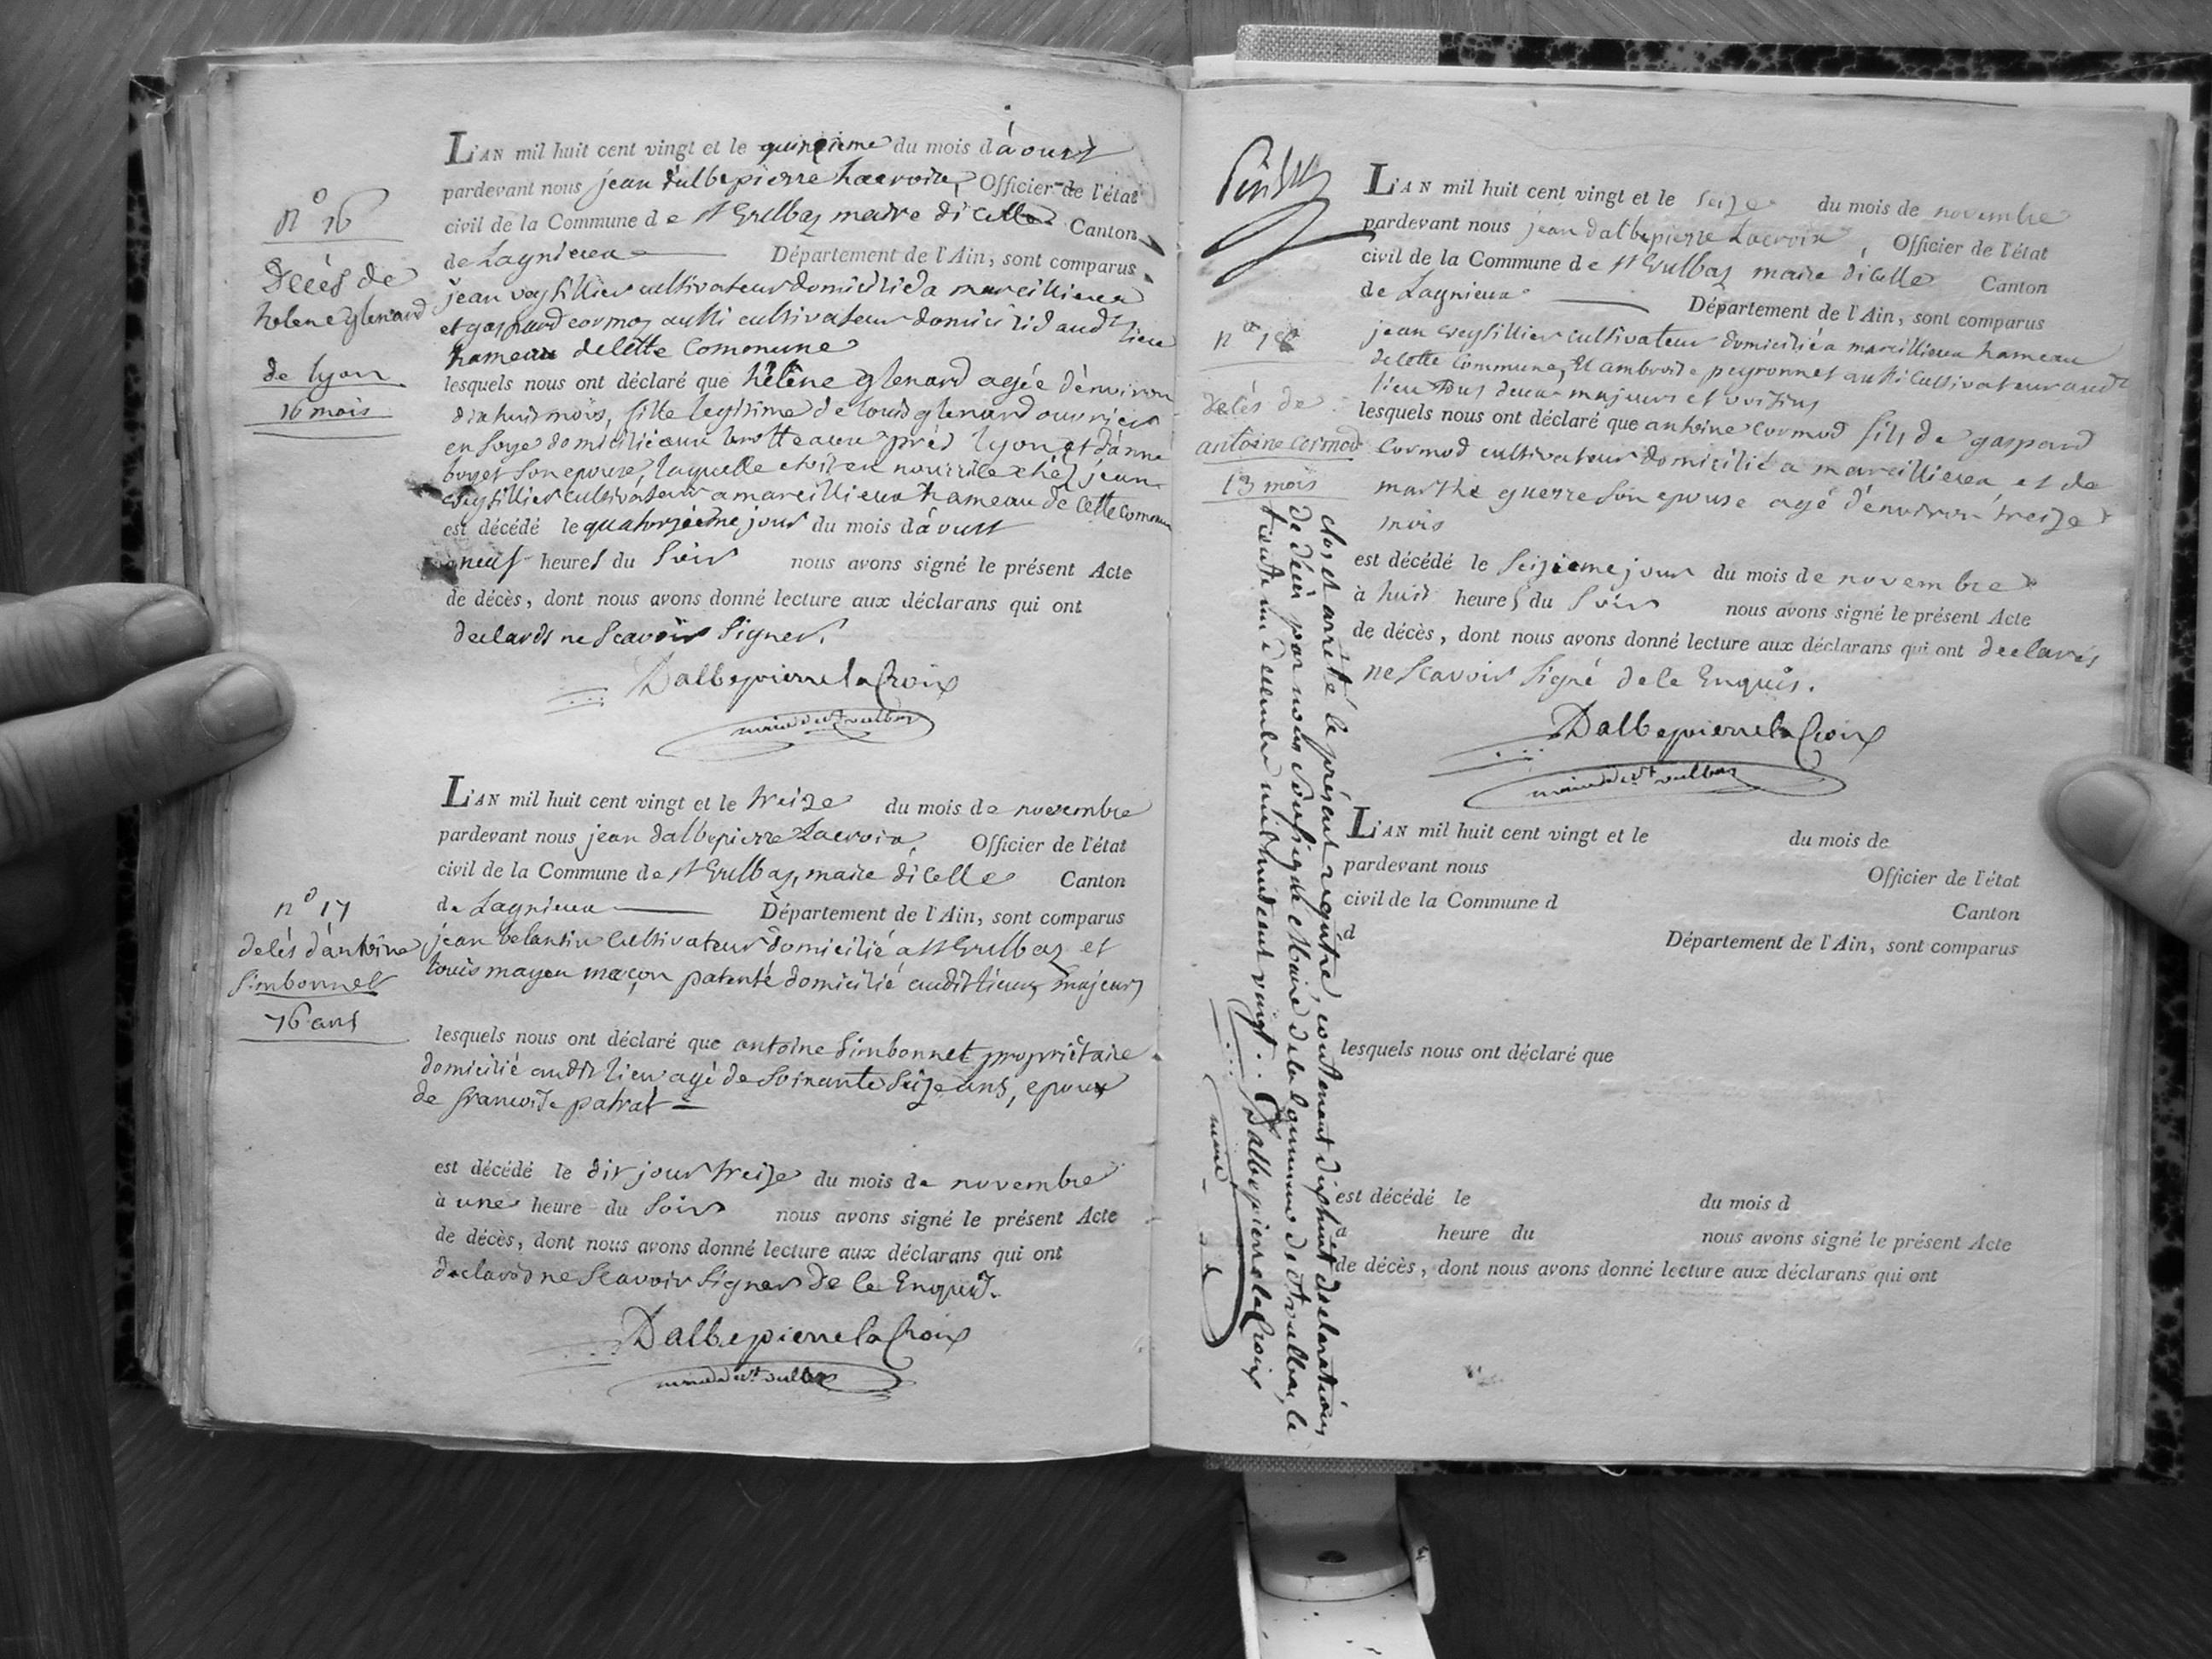 n.° 16
Décès de
helene glenard
de lyon
16 mois
L'AN mil huit cent vingt et le quinzieme du mois d'àoust
pardevant nous jean dalbepierre Lacroix, Officier de l'état
civil de la Commune de st Vullbaz maire dicelle Canton
de Lagnieux Département de l'Ain, sont comparus
jean veysillier cultivateur domicilié a marcillieux
et gaspard cormoz aussi cultivateur domicilié audt lieu
hameau de cette Commune
lesquels nous ont déclaré que hélène glenard agée d'environ
dixhuit mois, fille legitime de louis glenard ouvrier
en soye domicilié aux brotteaux près lyon et d'anne
boget son epouse, laquelle etoit en nourrice chéz jean
veysillier cultivateur a marcillieux hameau de cette commune
est décédé le quatorzième jour du mois d'àoust
à neuf heures du soir nous avons signé le présent Acte
de décès, dont nous avons donné lecture aux déclarans qui ont
declarés ne scavoir signer.
Dalbepierrelacroix
maire de st vulbaz
n.° 17
delés d'antoine
simbonnet
76 ans
L'AN mil huit cent vingt et le treize du mois de novembre
pardevant nous jean dalbepierre Lacroix, Officier de l'état
civil de la Commune de st Vullbaz, maire dicelle Canton
de Lagnieux Département de l'Ain, sont comparus
jean belantin cultivateur domicilié a st Vullbaz et
louis mayeu maçon patenté domicilié audit lieu, majeurs
lesquels nous ont déclaré que antoine simbonnet propriétaire
domicilié audit lieu agé de soixante seize ans, epoux
de francoise patrat
est décédé le dit jour treize du mois de novembre
à une heure du soir nous avons signé le présent Acte
de décès, dont nous avons donné lecture aux déclarans qui ont
declarés ne scavoir signer de ce Enquis.
Dalbepierrelacroix
maire de st vulbaz
n° 18
delés de
antoine cormod
13 mois
L'AN mil huit cent vingt et le seize du mois de novembre
pardevant nous jean dalbepierre Lacroix, Officier de l'état
civil de la Commune de st Vullbaz maire dicelle Canton
de Lagnieux Département de l'Ain, sont comparus
jean veysillier cultivateur domicilié a marcillieux hameau
de cette Commune, Et ambroise peyronnet aussi cultivateur audt
lieu tous deux majeurs et voisins
lesquels nous ont déclaré que antoine cormod fils de gaspard
cormod cultivateur domicilié a marcillieux et de
marthe guerre son epouse agé d'environ treize
mois
est décédé le seizieme jour du mois de novembre
à huit heures du soir nous avons signé le présent Acte
de décès, dont nous avons donné lecture aux déclarans qui ont declarés
ne scavoir signé de ce Enquis.
Dalbepierrelacroix
maire de st vulbaz
L'AN mil huit cent vingt et le du mois de
pardevant nous Officier de l'état
civil de la Commune d Canton
d Département de l'Ain, sont comparus
lesquels nous ont déclaré que
est décédé le du mois d
à heure du nous avons signé le présent Acte
de décès, dont nous avons donné lecture aux déclarans qui ont
clos et arretté le présent registre, contenant dixhuit declarations
de décès par nous soussigné Maire de la Commune de st vulbaz, le
trente un decembre mil huit cent vingt. Dalbepierrelacroix
maire